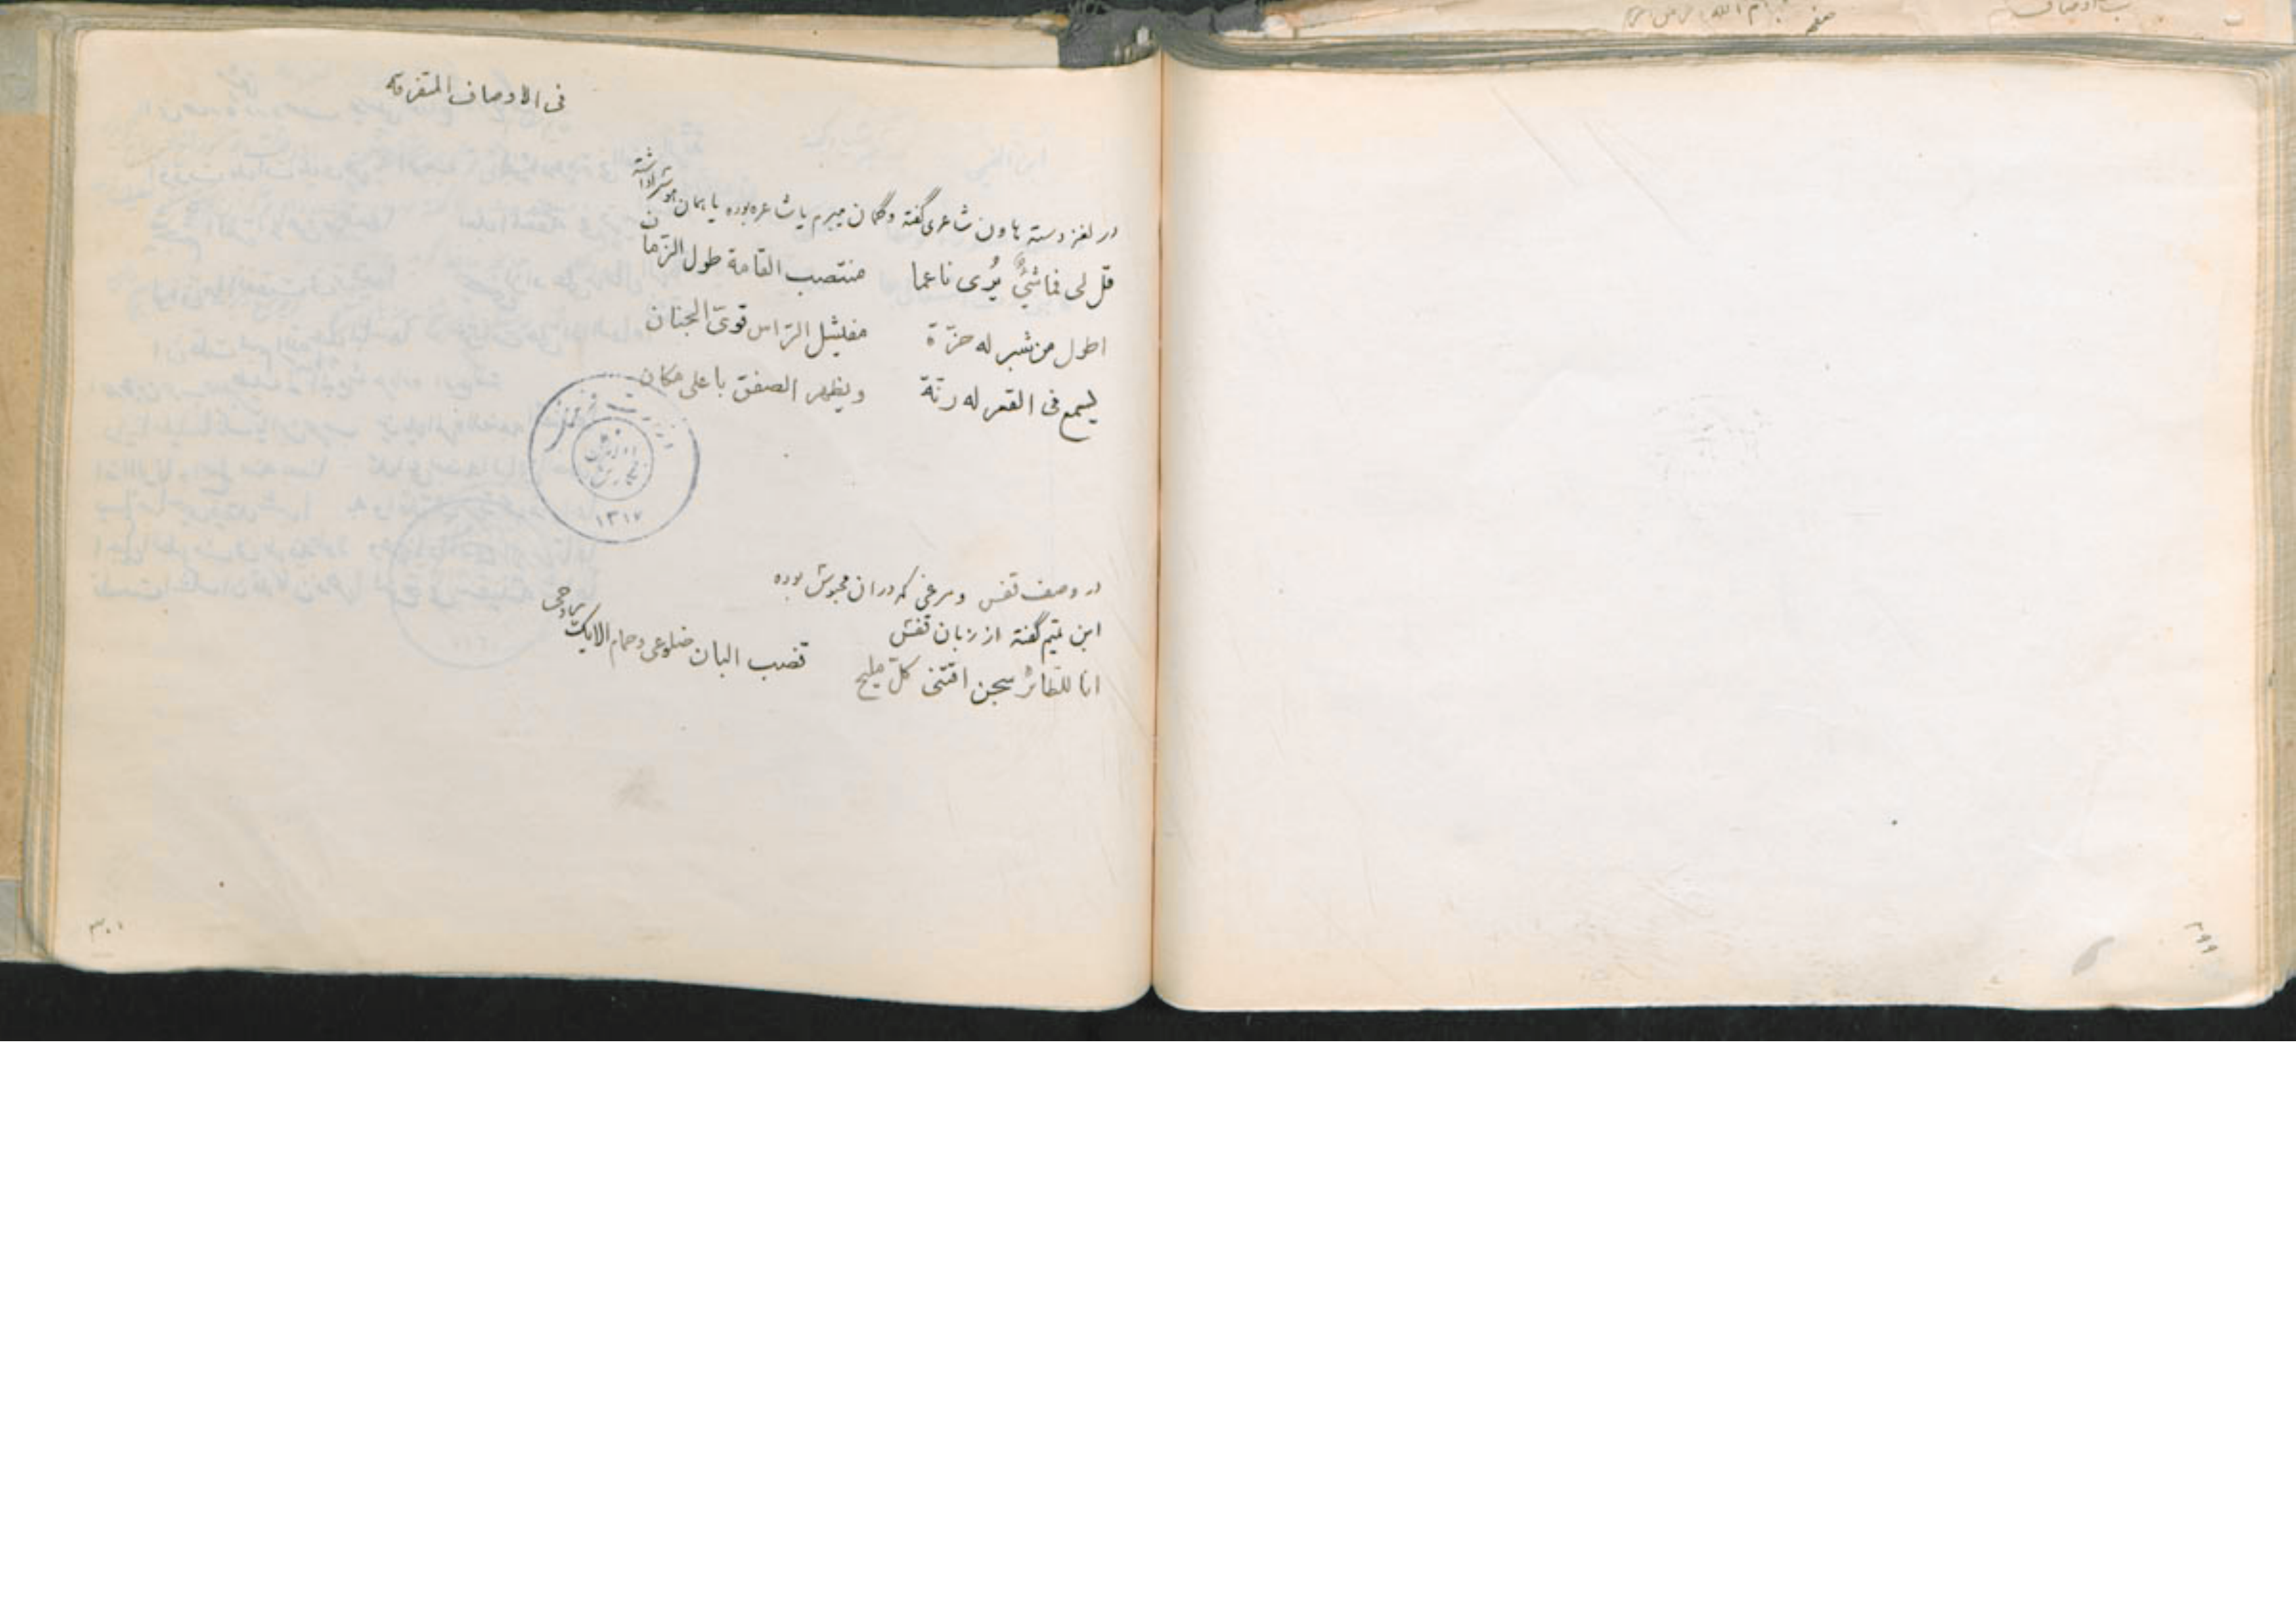 فی الاوصاف المتفرقه
در لغز دسته هاون شاعری گفته و گمان میبرم یا شاعره بوده یا همان
قل لی فما شیئٌ یُری ناعما منتصب القامة طول الزمان
اطول من شبر له حزّة مفیشل الرّاس قویّ الجنان
یسمع فی القعر له رنّة ویظهر الصفق باعلی مکان
۱۳۱۷
در وصف قفس و مرغی که در ان محبوس بوده
ابن تمیم گفته از زبان قفس
انا للطّائر سجن اقتنی کلّ ملیح قضب البان ضلوعی وحمام الایک روحی
۳۰۱
۲۹۹